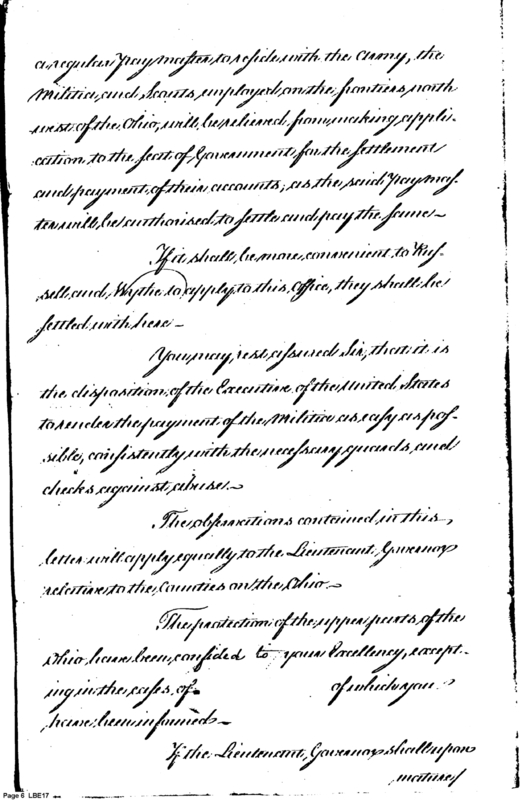 a regular Paymaster to reside with the army, the
Militia, and Scouts employed on the frontiers north
west of the Ohio, will be relieved from making appli-
cation to the seat of Government for the settlement
and payment of their accounts, as the said Paymas-
ter will be authorised to settle and pay the same —
If it shall be more convenient to Rus-
sell and Wythe to apply to this Office, they shall be
settled with here —
You may rest assured Sir, that it is
the disposition of the Executive of the United States
to render the payment of the Militia as easy as pos-
sible, consistently with the necessary guards and
checks against abuse. —
The observations contained in this,
letter will apply equally to the Lieutenant Governor
relative to the Counties on the Ohio —
The protection of the upper parts of the
Ohio have been confided to your Excellency, except-
ing in the cases of of which you
have been informed —
If the Lieutenant Governor shall upon
mature
Page 6 LBE17